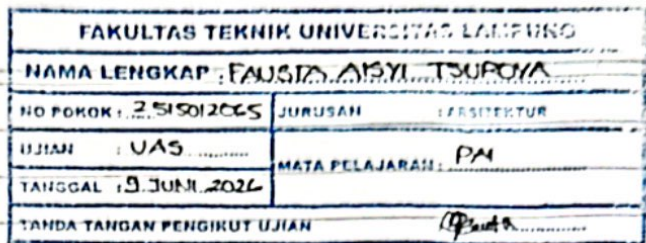 FAKULTAS TEKNIK UNIVERSITAS LAMPUNG
NAMA LENGKAP : FAUSTA AISYI TSUROYA
NO POKOK : 2515012065 JURUSAN : ARSITEKTUR
UJIAN : UAS MATA PELAJARAN : PAI
TANGGAL : 9 JUNI 2026
TANDA TANGAN PENGIKUT UJIAN